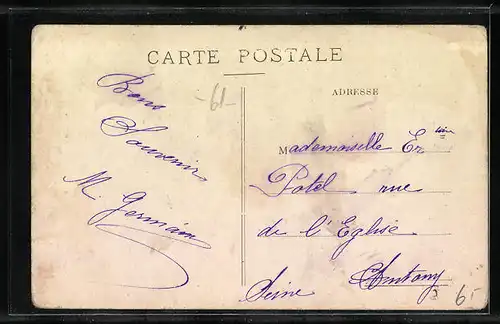 CARTE POSTALE
-61-
ADRESSE
Bons
Souvenirs
M. Germain
Mademoiselle
Potel rue
de l'Eglise
Antony
Seine
6.-